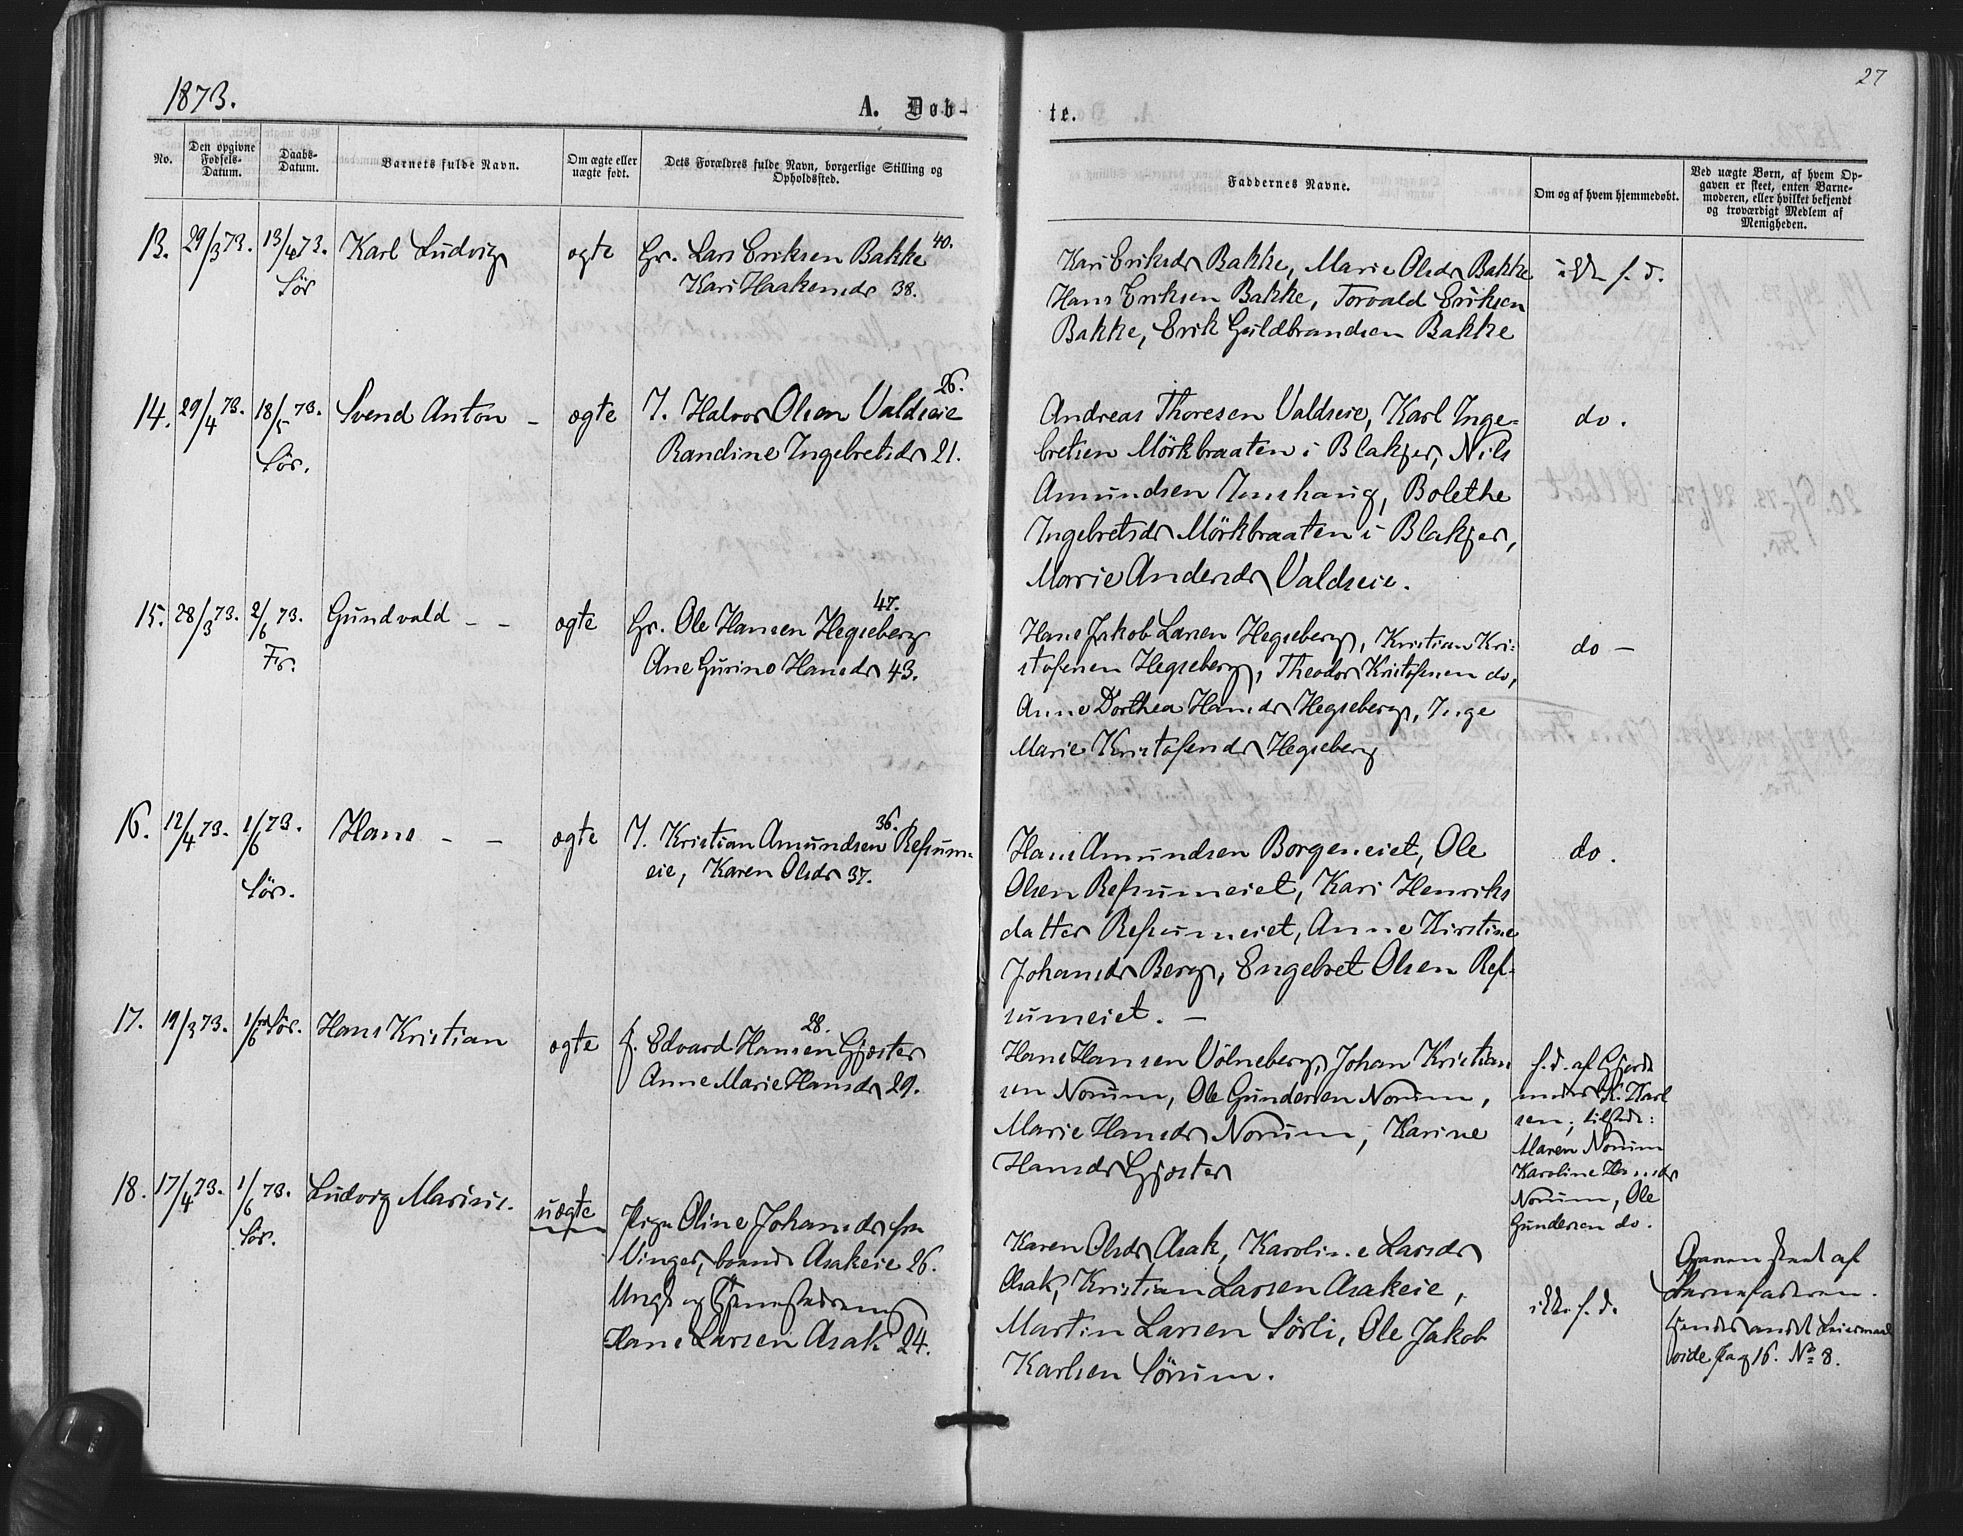 1873.
A. Døb-
te.
27
No.
Den opgivne Fødsels-Datum.
Daabs-Datum.
Barnets fulde Navn.
Om ægte eller uægte født.
Dets Forældres fulde Navn, borgerlige Stilling og Opholdssted.
Faddernes Navne.
Om og af hvem hjemmedøbt.
Ved uægte Børn, af hvem Op-
gaven er skeet, enten Barne-
moderen, eller hvilket bekjendt
og troværdigt Medlem af
Menigheden.
13. 29/3 73. 13/4 73. Karl Ludvig ægte Gr. Lars Eriksen Bakke 40.
Sør
Kari Haakensdr 38.
Kari Eriksdr Bakke, Marie Olsdr Bakke
Hans Eriksen Bakke, Torvald Eriksen
Bakke, Erik Guldbrandsen Bakke
ikke h. d.
14. 29/4 73. 18/5 73. Svend Anton - ægte I. Halvor Olsen Valdseie 26.
Sør.
Randine Ingebretsdr 21.
Andreas Thoresen Valdseie, Karl Inge-
bretsen Mörkbraaten i Blakjer, Nils
Amundsen, Bolethe
Ingebretsdr Mörkbraaten i Blakjer,
Marie Andersdr Valdseie.
do.
15. 28/3 73. 2/6 73. Gundvald - - ægte Gr. Ole Hansen Hegseberg 47.
Fr.
Ane Gurine Hansdr 43.
Hans Jakob Larsen Hegseberg, Kristian Kri-
stofersen Hegseberg, Theodor Kristofersen do,
Anne Dorthea Hansdr Hegseberg, Inge
Marie Kristofersdr Hegseberg
do -
16. 12/4 73. 1/6 73. Hans - - ægte I. Kristian Amundsen Refsum- 36.
Sør.
eie, Karen Olsdr 37.
Hans Amundsen Borgeneiet, Ole
Olsen Refsumeiet, Kari Henriks
datter Refsumeiet, Anne Kirstine
Johansdr Berg, Engebret Olsen Ref-
sumeiet. -
do.
17. 19/3 73. 1/6 73 Sør. Hans Kristian ægte f. Edvard Hansen Gjæster 28.
Anne Marie Hansdr 29.
Hans Hansen Völneberg, Johan Kristian
sen Norum, Ole Gundersen Norum,
Marie Hansdr Norum, Karine
Hansdr Gjæster
h. d. af Gjord
moder K. Karl
sen, tilstede:
Maren Norum
Karoline Hansdr
Norum, Ole
Gundersen do.
18. 17/4 73. 1/6 73. Ludvig Marius. uægte Pige Oline Johansdr fra
Sør.
Vinger, boende Asakeie 26.
Ungk og
Hans Larsen Asak 24.
Karen Olsdr Asak, Karoline Larsdr
Asak, Kristian Larsen Asakeie,
Martin Larsen Sörli, Ole Jakob
Karlsen Sörum.
ikke h. d.
Opgaven skeet af
Barnefaderen.
hendes andet Leiermaal
vide Pag 16. No 8.